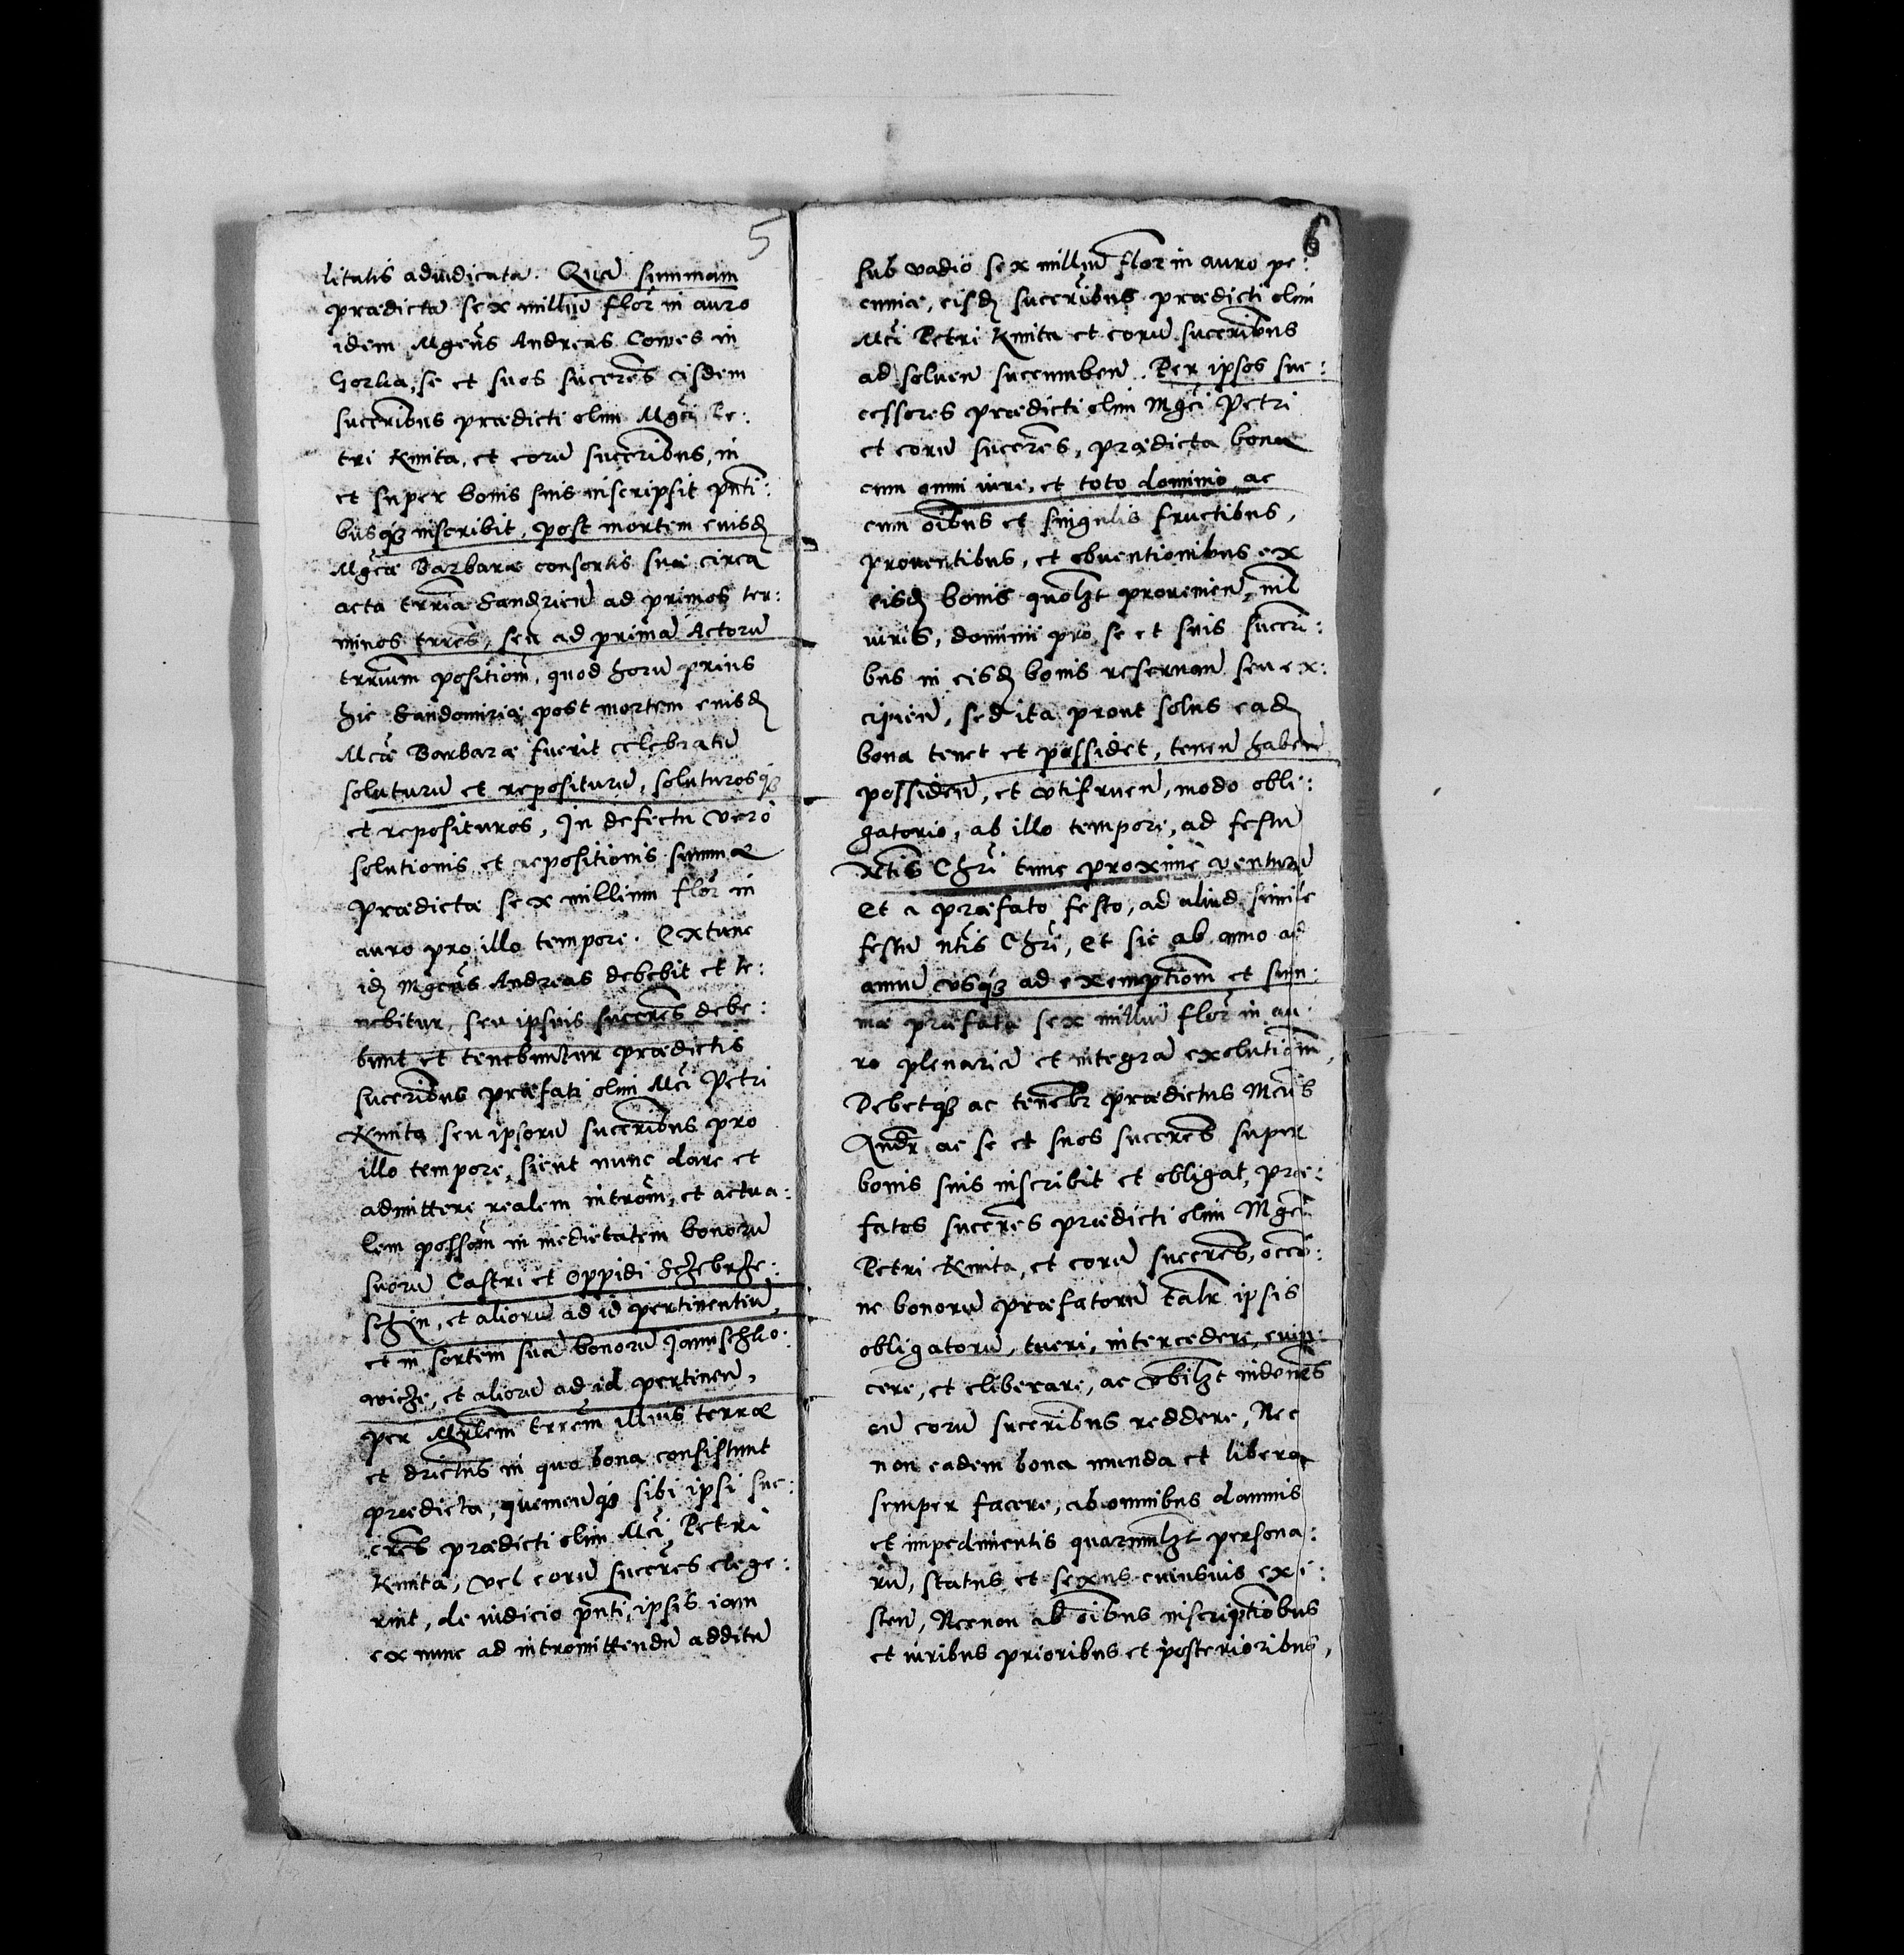 5
litatis adiudicata. Quā summam
prædictā sex milliū flor in auro
idem Mgcus Andreas Comes in
Gorka, se et suos succeres eisdem
succeribus prædicti olim Mgci Pe:
tri Kmita, et eorū succeribus, in
et super bonis suis inscripsit pnti:
busq3 inscribit, post mortem eiusd
Mgcæ Barbaræ consortis suæ circa
acta terria Sandzien ad primos ter:
minos terres, seu ad primā Actorū
terrium positiom, quod horū prius
hic Sandomiriæ post mortem eiusd
Mcæ Barbaræ fuerit celebratū
soluturū et repositurū, soluturosq3
et reposituros, In defectu vero
solutionis et repositionis summæ
prædictæ sex millium flor in
auro pro illo tempore. Extunc
id Mgcus Andreas debebit et te:
nebitur, seu ipsius succeres debe:
bunt et tenebuntur prædictis
succeribus præfati olim Mci Petri
Kmita seu ipsorū succeribus pro
illo tempore, sicut nunc dare et
admittere realem introm, et actua:
lem possom in medietatem bonorū
suorū Castri et Oppidi Sczebrze:
schin, et aliorū ad id pertinentiū,
et in sortem suā bonorū Januschlo:
wicze, et aliorū ad id pertinen,
per Mrlem terrem illius terræ
et drictus in quo bona consistunt
prædicta, quemcunq3 sibi ipsi suc:
ceres prædicti olim Mci Petri
Kmita, vel eorū succeres elege:
rint, de iudicio pnti, ipsis iam
ex nunc ad intromittendū additū
6
sub vadio sex milliū flor in auro pe:
cuniæ, eisd succeribus prædicti olim
Mci Petri Kmita et eorū succeribus
ad soluen succumben. Per ipsos suc:
cessores prædicti olim Mgci Petri
et eorū succeres, prædicta bona
cum omni iure, et toto dominio ac
cum oibus et singulis fructibus,
prouentibus, et obuentionibus ex
eisd bonis quolzt prouenien, nil
iuris, dominii pro se et suis succeri:
bus in eisd bonis reseruan seu ex:
cipien, sed ita prout solus ead
bona tenet et possidet, tenen haben
possiden, et vtifruen, modo obli:
gatorio, ab illo tempore, ad festū
Ntis Chri tunc proxime venturū
Et a præfato festo, ad aliud simile
festū ntis Chri, Et sic ab anno ad
annū vsq3 ad exemptiom et sum:
mæ præfatæ sex milliū flor in au:
ro plenariā et integrā exolutiom,
Debetq3 ac tenebr prædictus Mcus
Andr ac se et suos succeres super
bonis suis inscribit et obligat, præ:
fatos succeres prædicti olim Mgci
Petri Kmita, et eorū succeres, occo:
ne bonorū præfatorū talr ipsis
obligatorū, tueri, intercedere, euin:
cere, et eliberare, ac vbilzt indemnes
cū eorū succeribus reddere, Nec
non eadem bona munda et libera
semper facere, ab omnibus damnis
et impedimentis quarumlzt persona:
rū, status et sexus cuiusuis exi:
sten, Necnon ab oibus inscriptiobus
et iuribus prioribus et posterioribus,